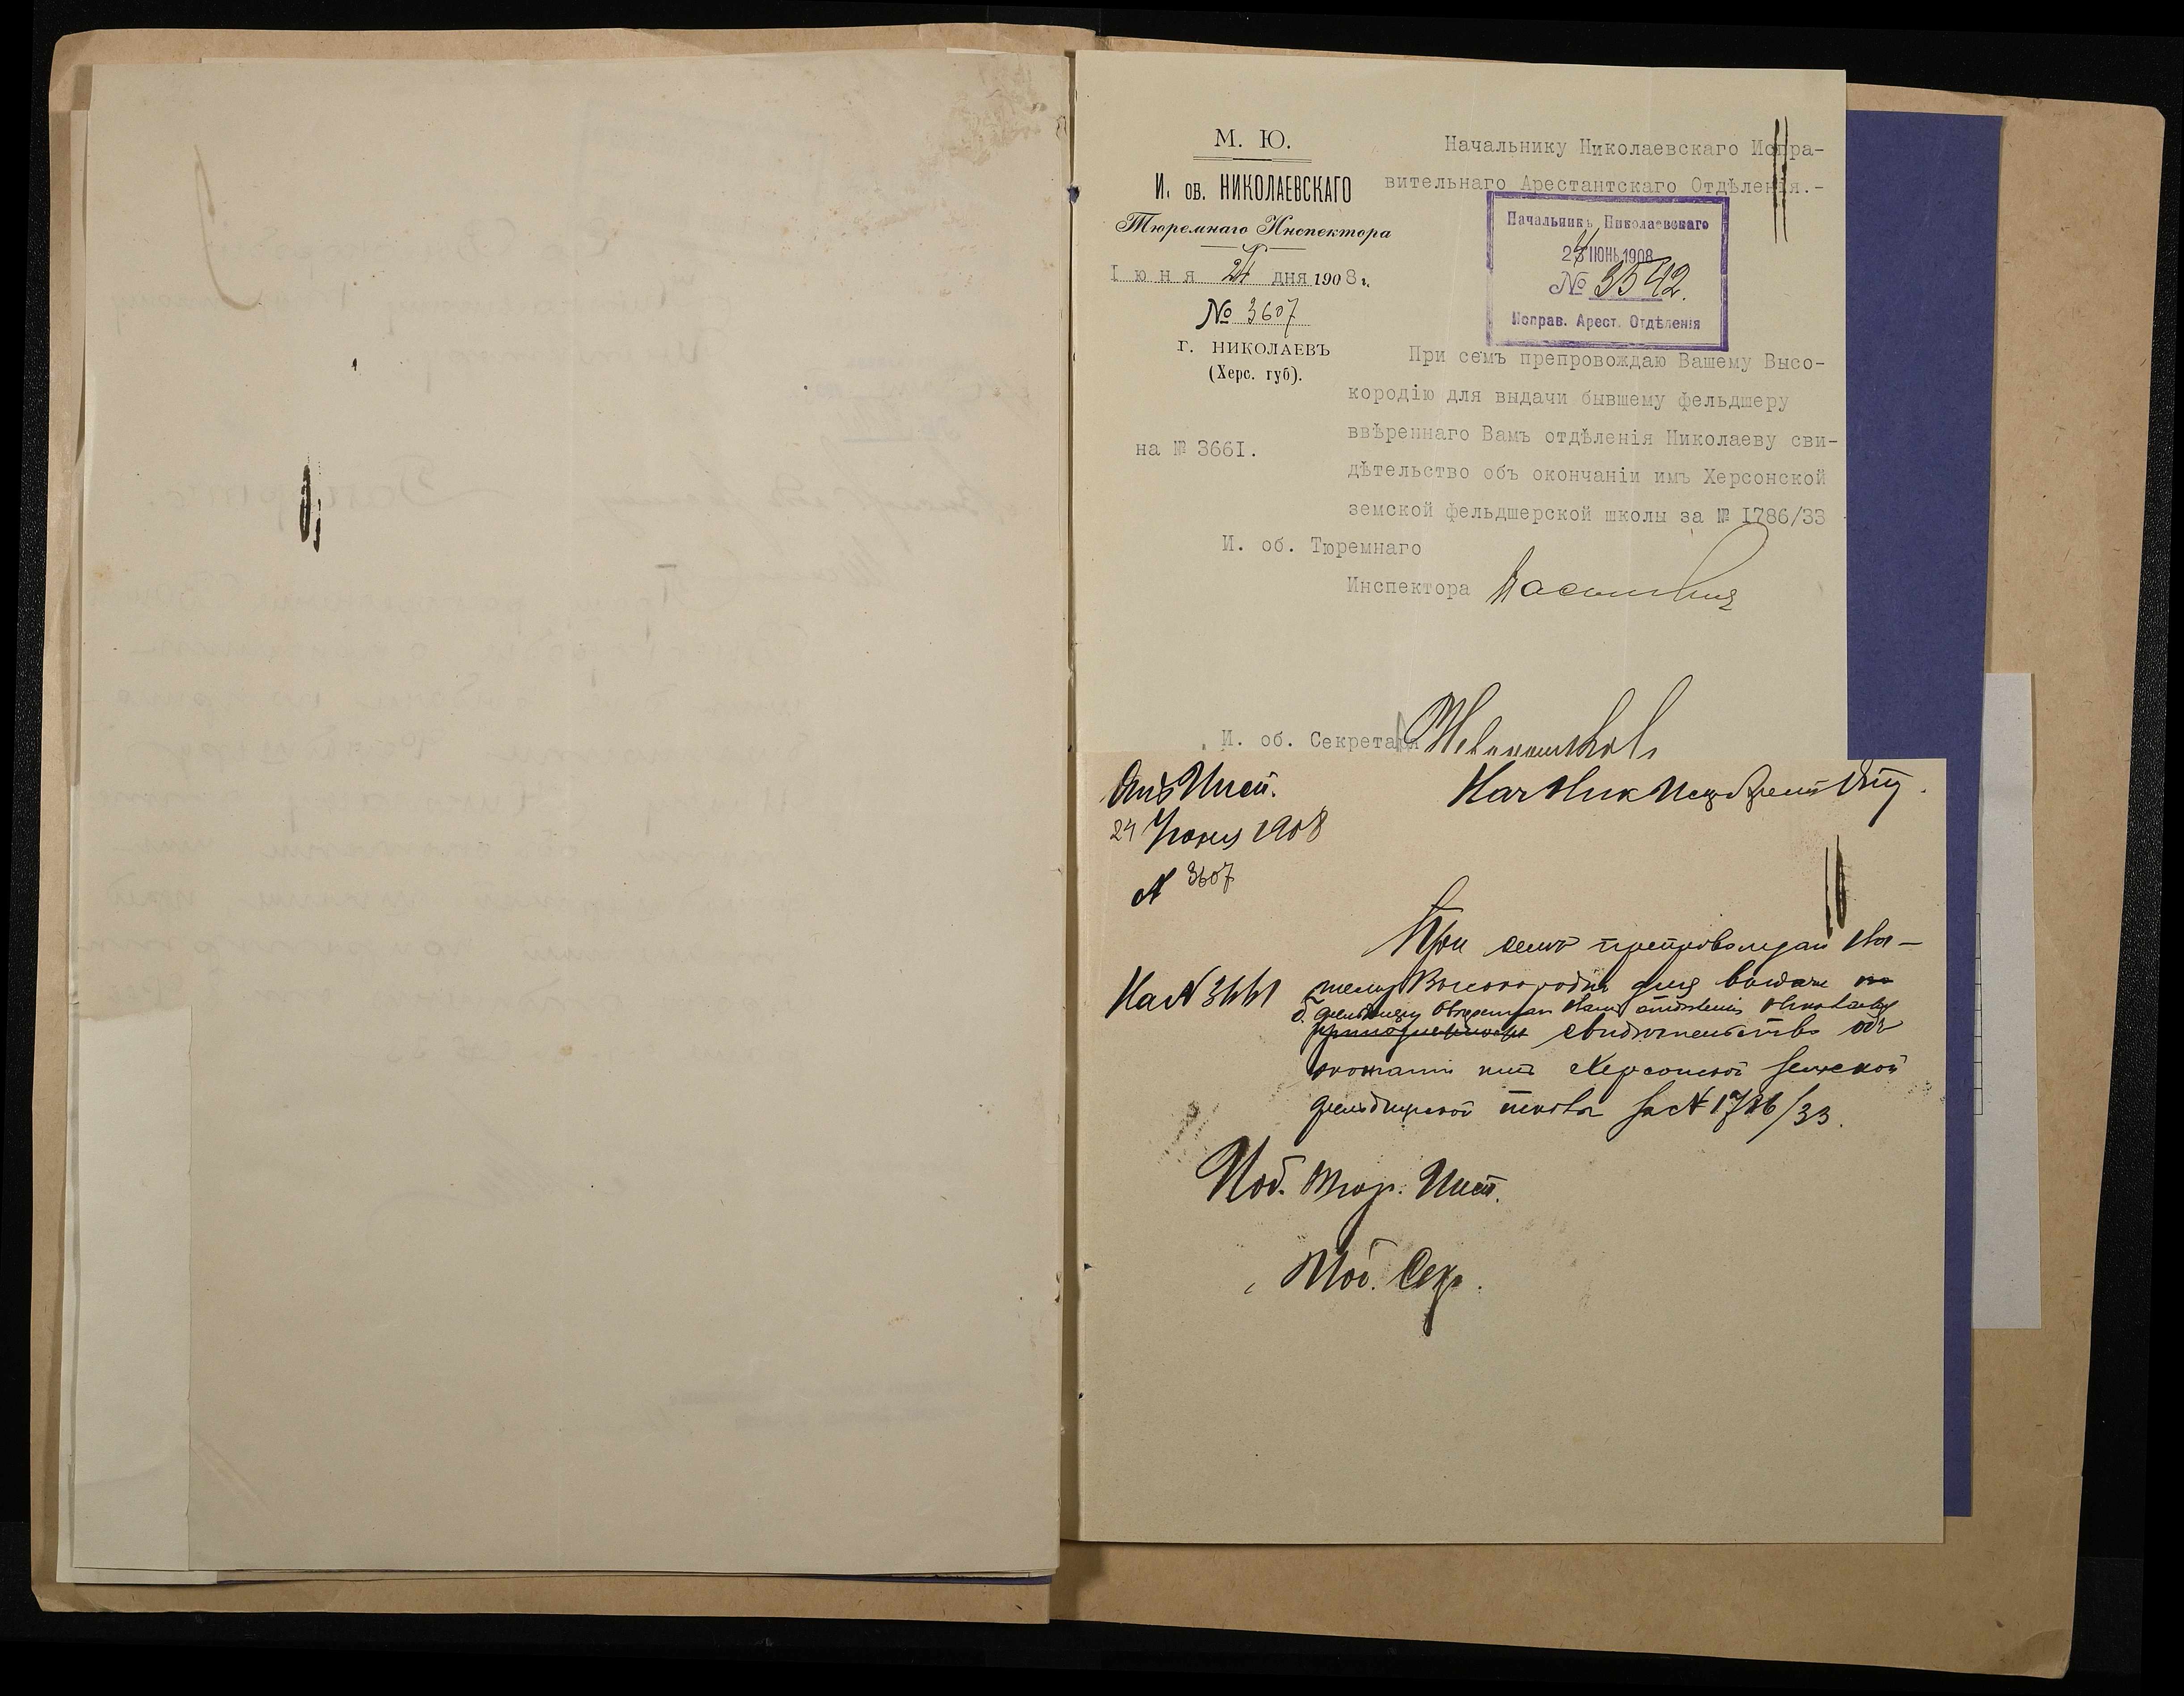 М. Ю.
И. об. НИКОЛАЕВСКАГО
Тюремнаго Инспектора
Iюня 24 дня 1908 г.
№ 3607
г. НИКОЛАЕВЪ
(Херс. губ).
на № 3661.
Начальнику Николаевскаго Испра-
вительнаго Арестантскаго Отдѣленія.-
Начальникъ Николаевскаго
ІЮНЬ 1908
№ 3542.
Исправ. Арест. Отдѣленія
При семъ препровождаю Вашему Высо-
кородію для выдачи бывшему фельдшеру
ввѣреннаго Вамъ отдѣленія Николаеву сви-
дѣтельство объ окончаніи имъ Херсонской
земской фельдшерской школы за № I786/33
И. об. Тюремнаго
Инспектора
И. об. Секретаря
24 Іюня 1908
№ 3607
На № 3661
При семъ препровождаю Ва-
шему Высокородію для выдачи
б. фельдшеру ввѣреннаго Вамъ отдѣленія Николаеву
свидѣтельство объ
окончаніи имъ Херсонской земской
фельдшерской школы за № 1786/33.
Иоб. Тюр. Инсп.
Иоб. Секр.